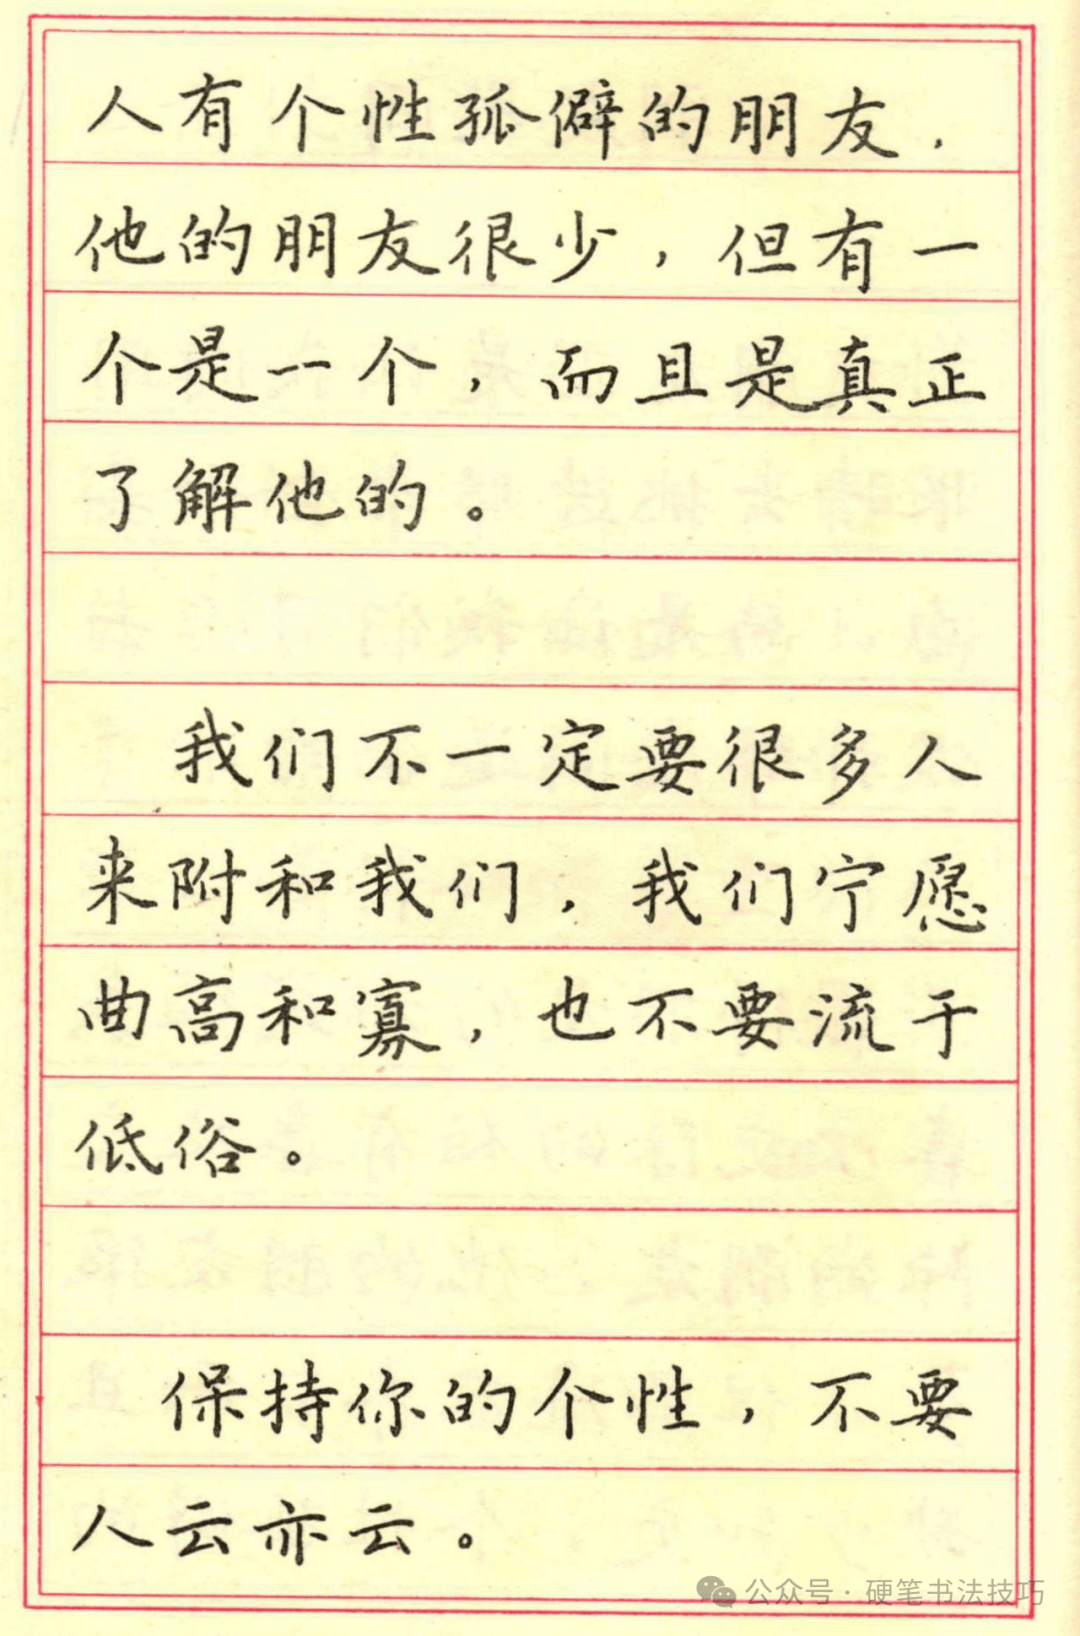 人有个性孤僻的朋友，
他的朋友很少，但有一
个是一个，而且是真正
了解他的。
我们不一定要很多人
来附和我们，我们宁愿
曲高和寡，也不要流于
低俗。
保持你的个性，不要
人云亦云。
公众号·硬笔书法技巧